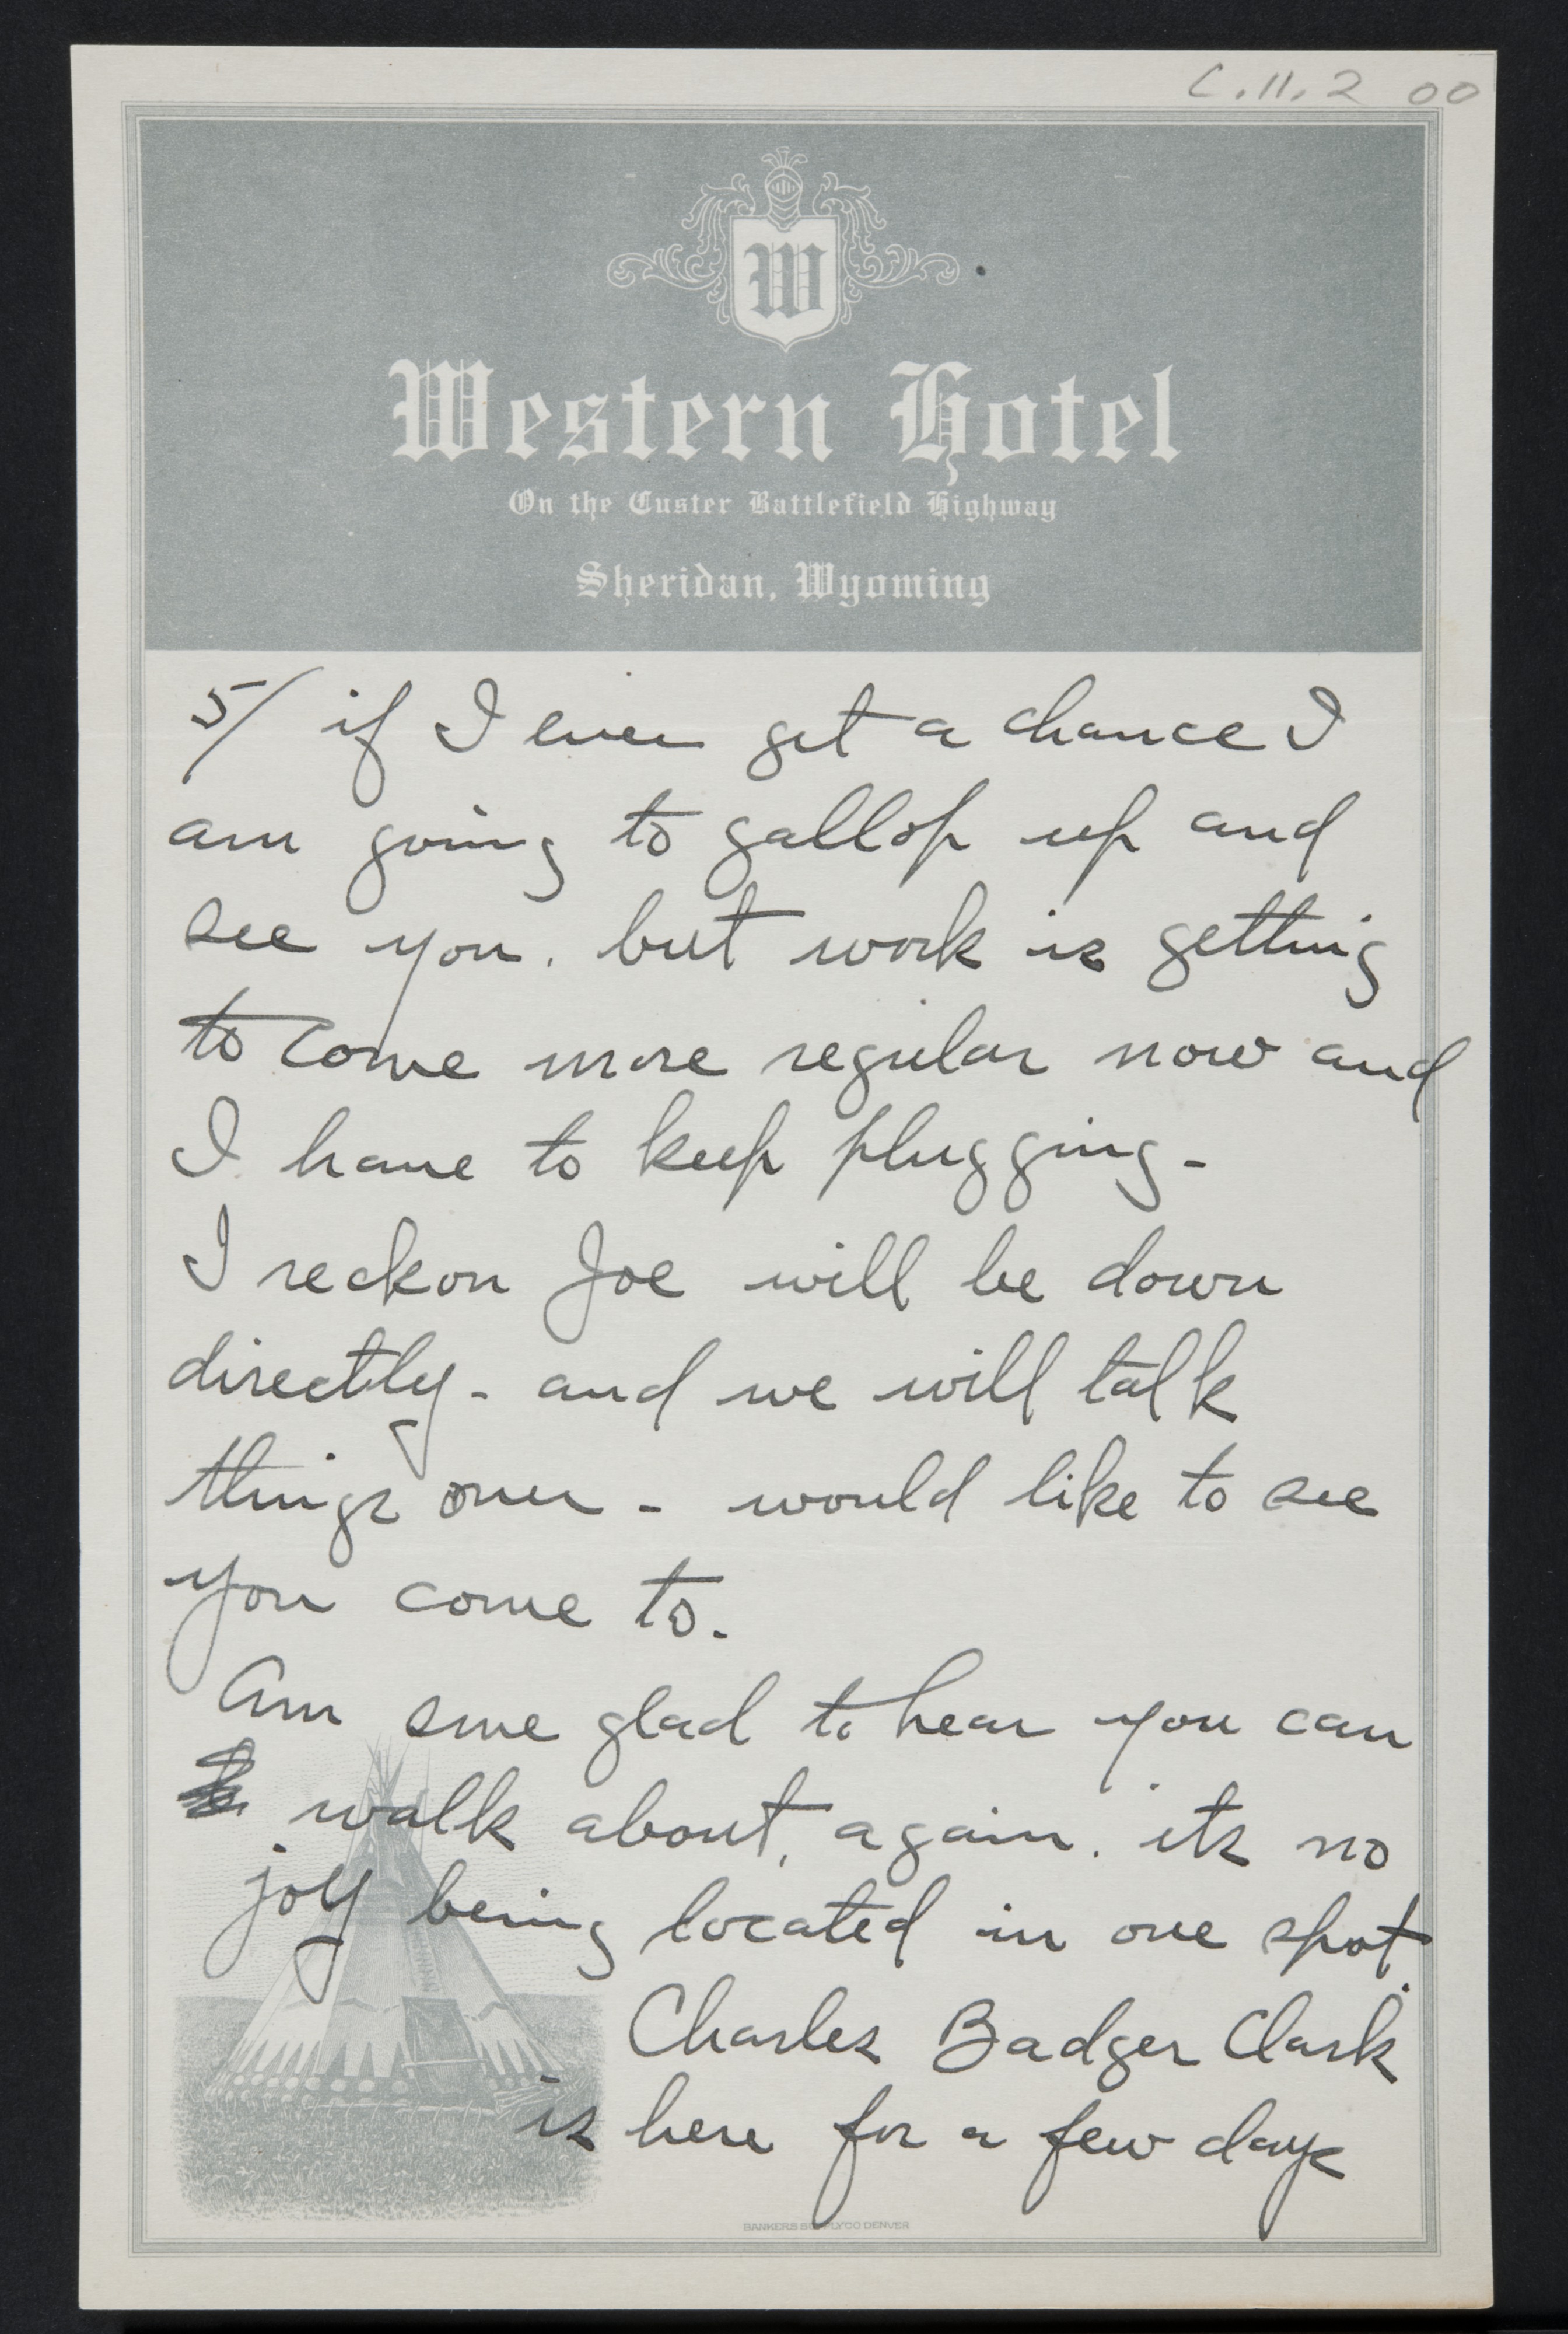 C.11.2 00
W
Western Hotel
On the Custer Battlefield Highway
Sheridan, Wyoming
5/ if I ever get a chance I
am going to gallop up and
see you. but work is getting
to come more regular now and
I have to keep plugging-
I reckon Joe will be down
directly - and we will talk
things over - would like to see
you come to.
Am sure glad to hear you can
walk about, again. its no
joy being located in one spot.
Charles Badger Clark
is here for a few days
BANKERS SUPPLY CO DENVER